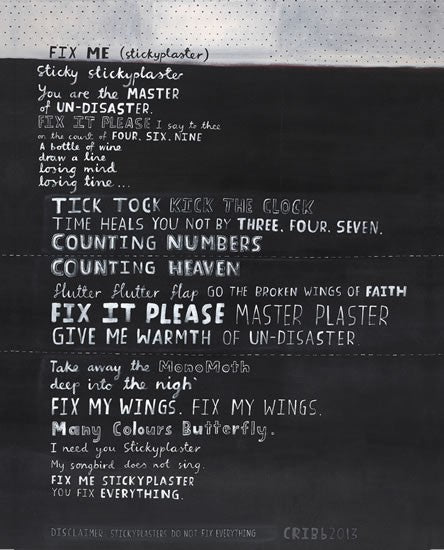 FIX ME (stickyplaster)
Sticky stickyplaster
You are the MASTER
of UN-DISASTER.
FIX IT PLEASE I say to thee
on the count of FOUR. SIX. NINE
A bottle of wine
draw a line
losing mind
losing time...
TICK TOCK KICK THE CLOCK
TIME HEALS YOU NOT BY THREE. FOUR. SEVEN.
COUNTING NUMBERS
COUNTING HEAVEN
flutter flutter flap GO THE BROKEN WINGS OF FAITH
FIX IT PLEASE MASTER PLASTER
GIVE ME WARMTH OF UN-DISASTER
Take away the MonoMoth
deep into the nigh'
FIX MY WINGS. FIX MY WINGS.
Many Colours Butterfly.
I need you Stickyplaster
My songbird does not sing.
FIX ME STICKYPLASTER
YOU FIX EVERYTHING.
DISCLAIMER: STICKYPLASTERS DO NOT FIX EVERYTHING
CRIBb2013